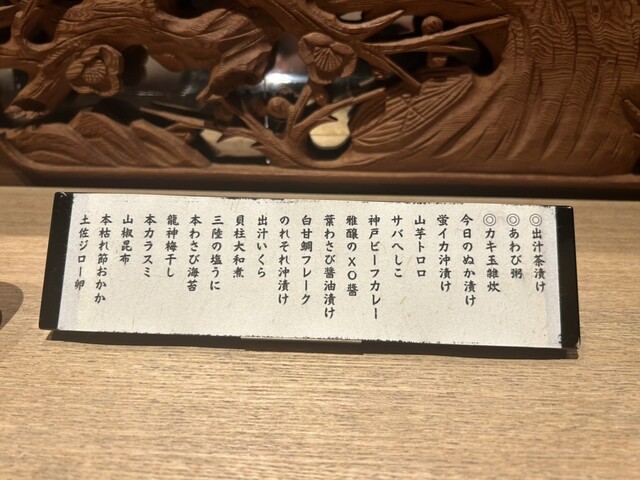 ◎出汁茶漬け
◎あわび粥
◎カキ玉雑炊
今日のぬか漬け
蛍イカ沖漬け
山芋トロロ
サバへしこ
神戸ビーフカレー
雅醸のXO醬
葉わさび醬油漬け
白甘鯛フレーク
のれそれ沖漬け
出汁いくら
貝柱大和煮
三陸の塩うに
本わさび海苔
龍神梅干し
本カラスミ
山椒昆布
本枯れ節おかか
土佐ジロー卵